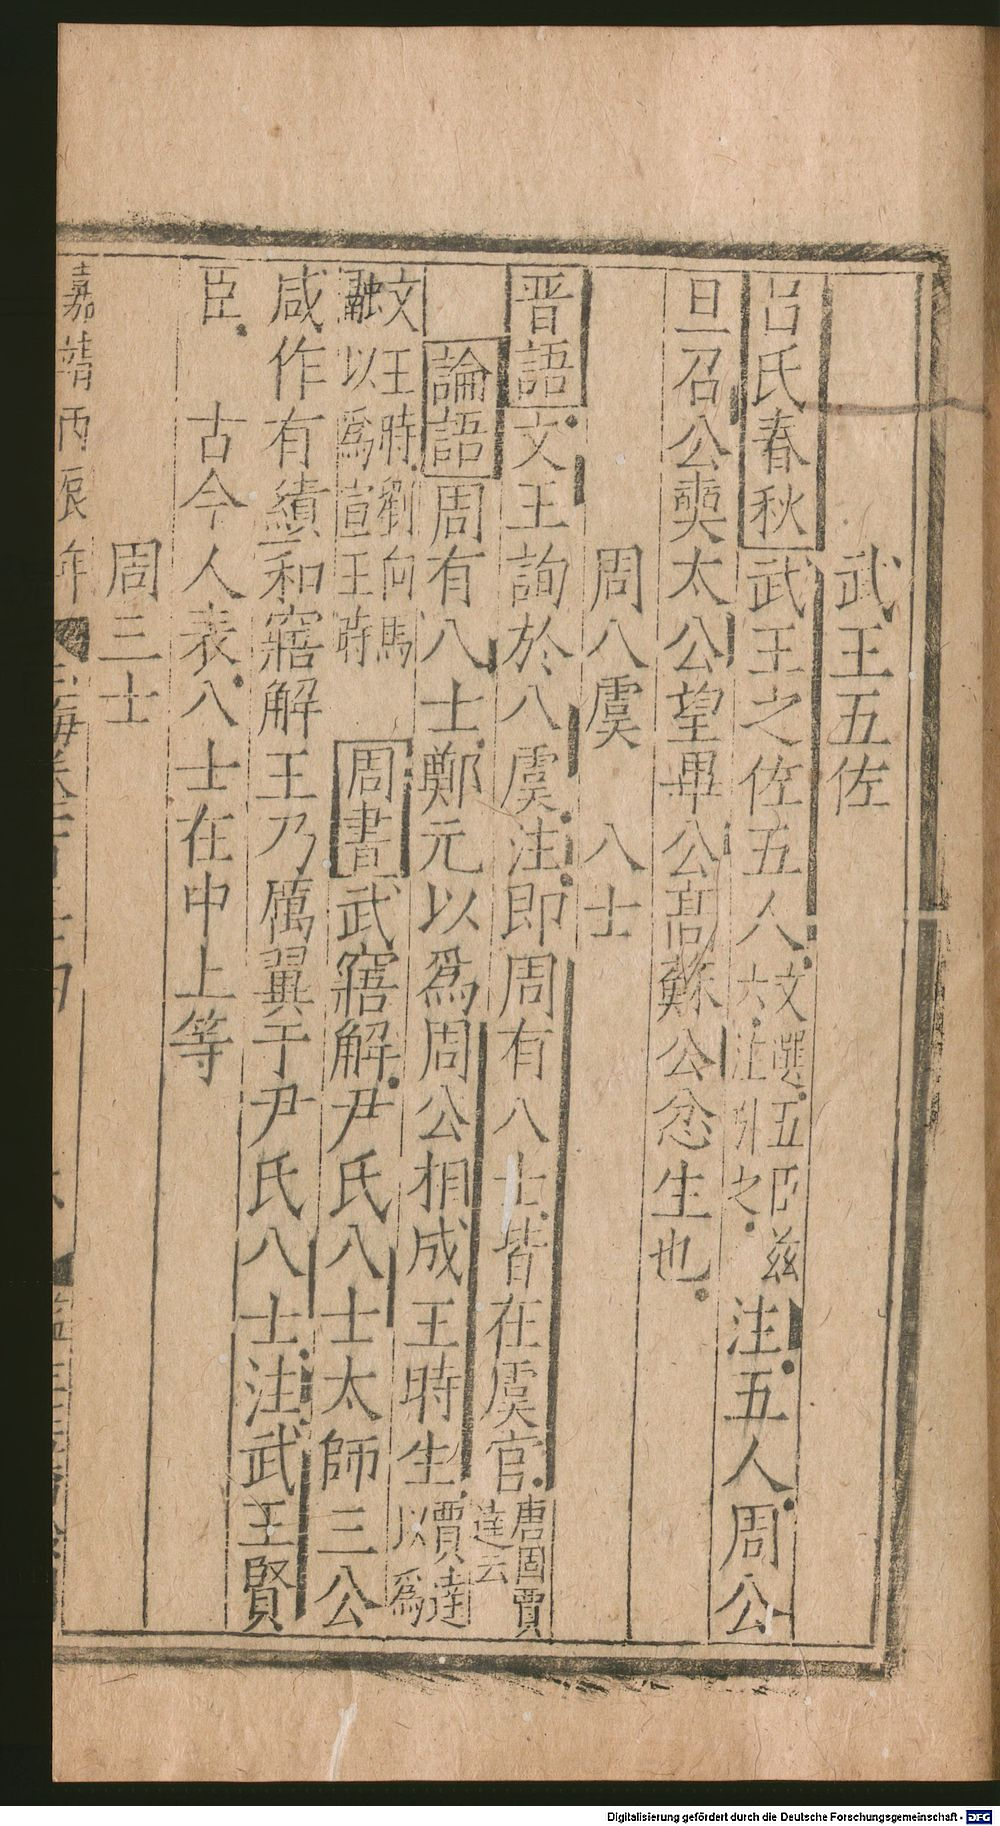 武王五佐
呂氏春秋武王之佐五人文選五臣茲六注引之注五人周公
旦召公奭太公望畢公高蘇公忿生也
周八虞　八士
晋語文王詢於八虞注即周有八士皆在虞官唐固賈達云
論語周有八士鄭元以爲周公相成王時生賈逵以爲
文王時劉向馬融以爲宣王時　周書武寤解尹氏八士太師三公
咸作有績和寤解王乃厲翼于尹氏八士注武王賢
臣　古今人表八士在中上等
周三士
嘉靖丙辰年
Digitalisierung gefördert durch die Deutsche Forschungsgemeinschaft - DFG